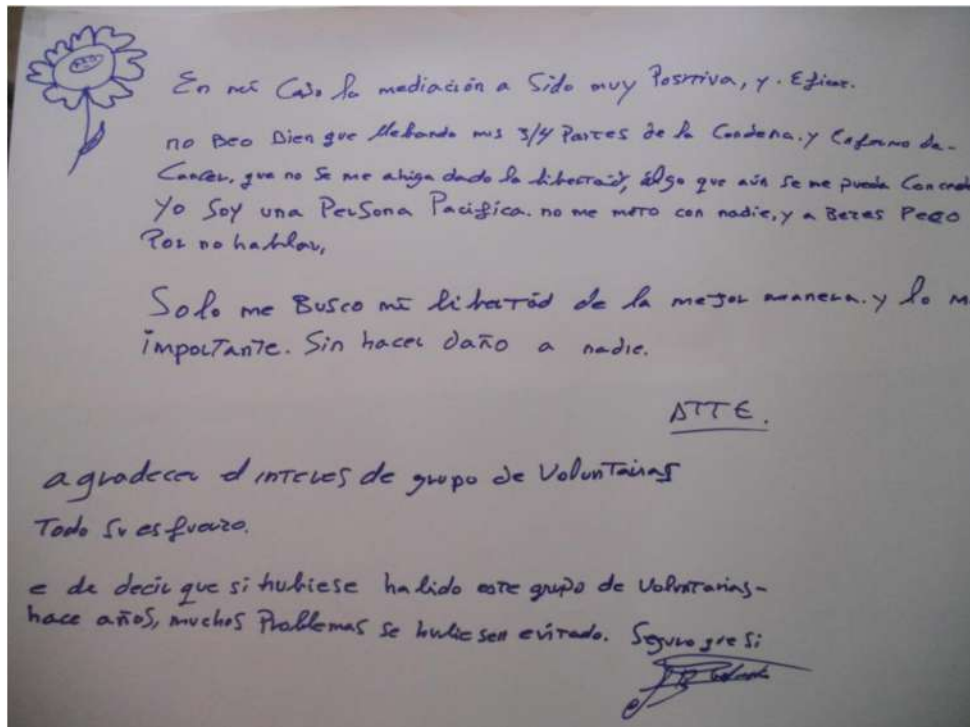 En mi Caso la mediación a Sido muy Positiva, y. Eficaz.
no Beo Bien que llebando mis 3/4 Partes de la Condena. y Enfermo de-
Cancer, que no Se me ahiga dado la libertad, álgo que aún Se me pueda
Yo Soy una Persona Pacifica. no me meto con nadie, y a Bezes Peco
Por no hablar,
Solo me Busco mi libertád de la mejor manera. y lo m
importante. Sin hacer daño a nadie.
ATTE.
agradecer el interes de grupo de Voluntarias
Todo Su esfuerzo.
e de decir que si hubiese habido este grupo de Voluntarias-
hace años, muchos Problemas se hubiesen evitado. Seguro que Si